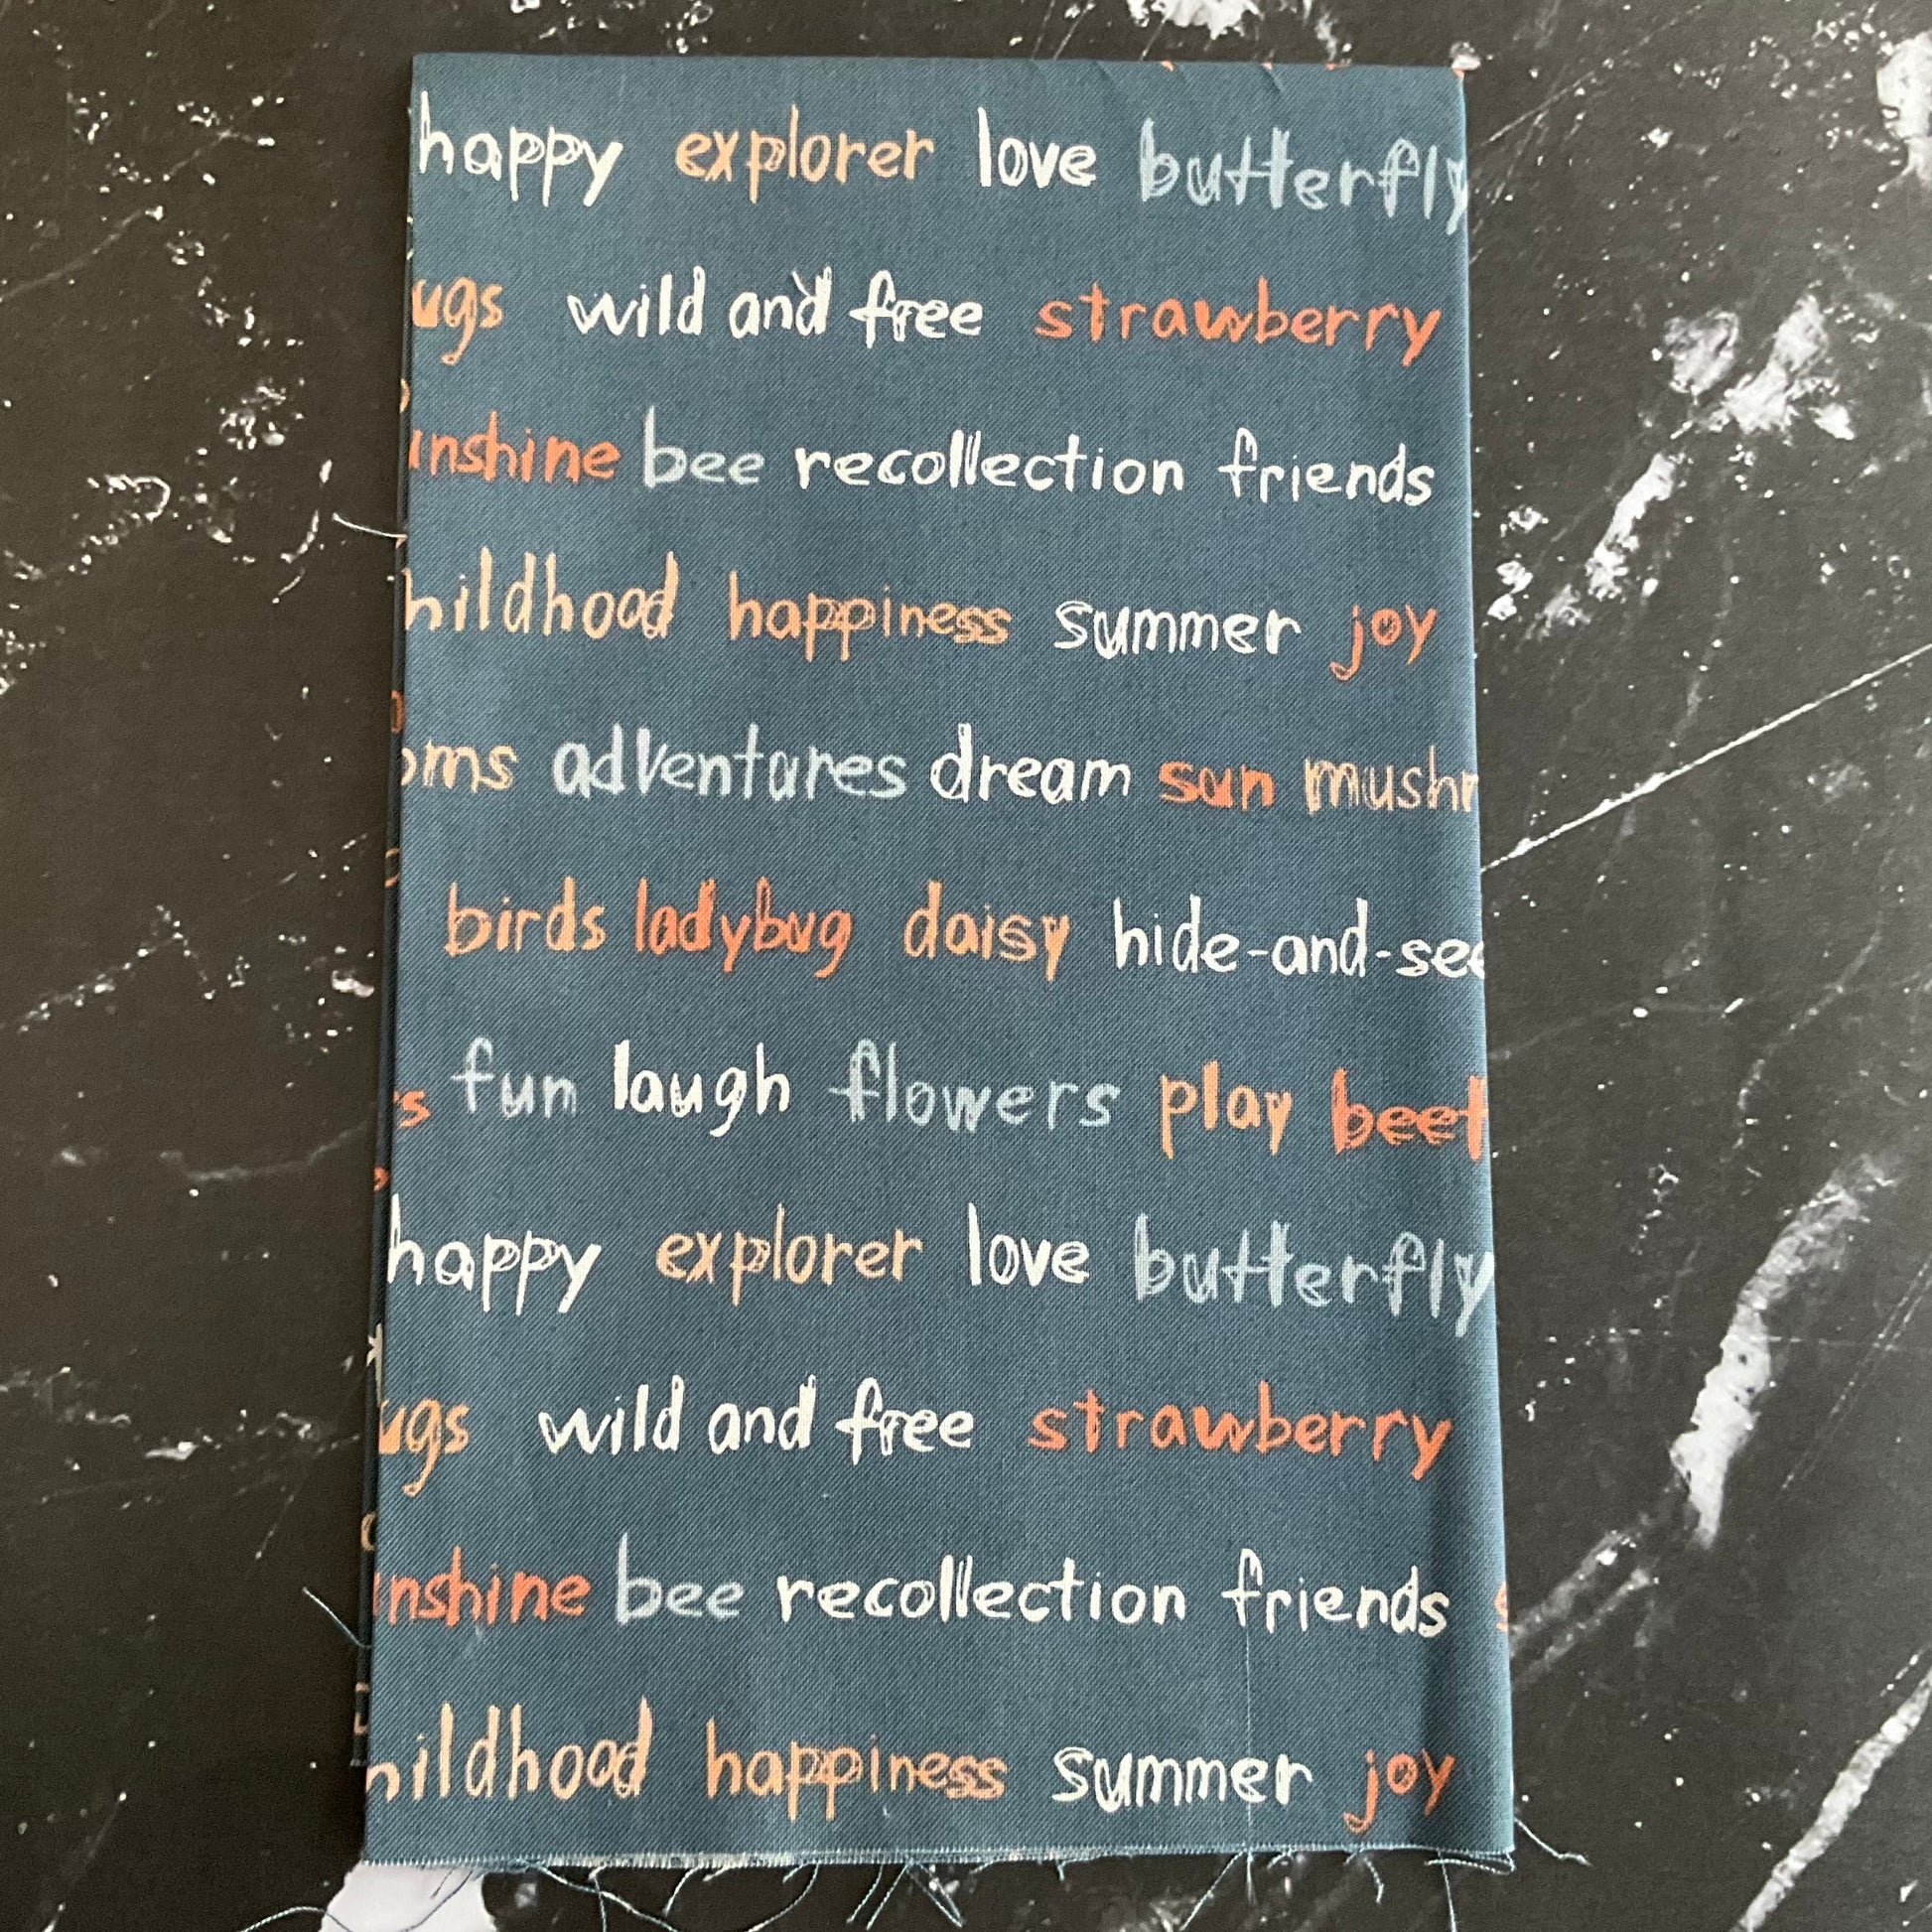 happy explorer love butterfly
ugs wild and free strawberry
unshine bee recollection friends
hildhood happiness summer joy
oms adventures dream sun mushr
birds ladybug daisy hide-and-see
s fun laugh flowers play beet
happy explorer love butterfly
ugs wild and free strawberry
unshine bee recollection friends s
hildhood happiness summer joy